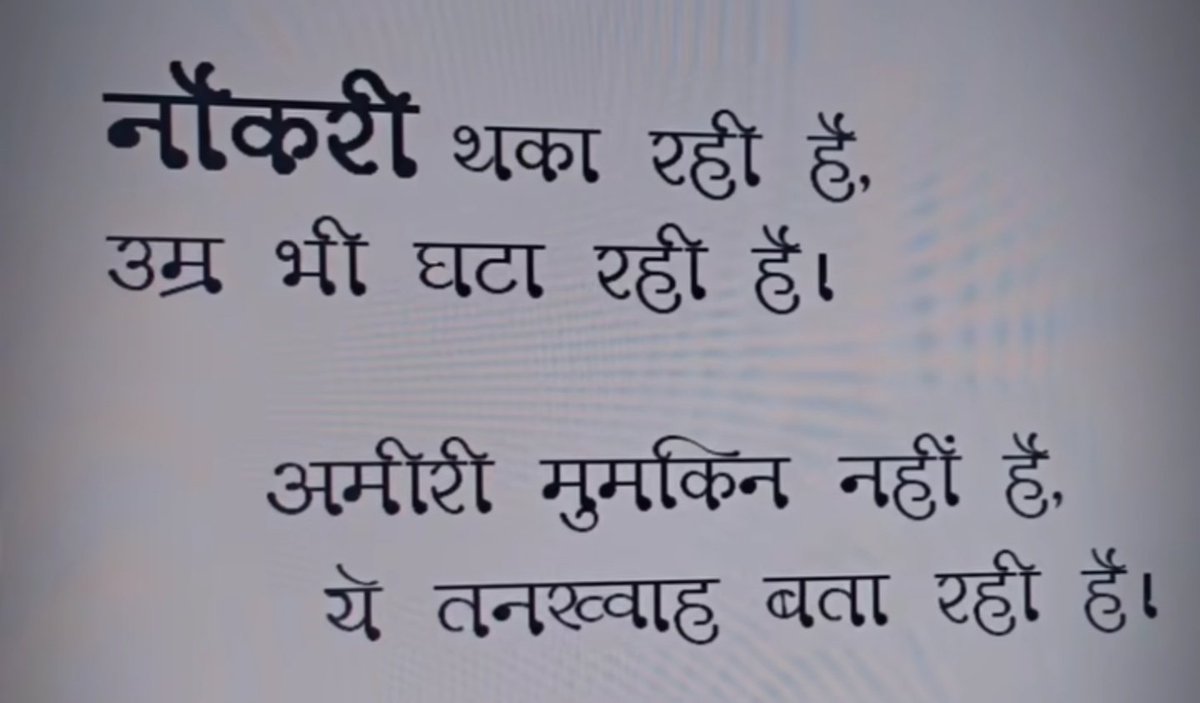 नौकरी थका रही है,
उम्र भी घटा रही है।
अमीरी मुमकिन नहीं है,
ये तनख्वाह बता रही है।